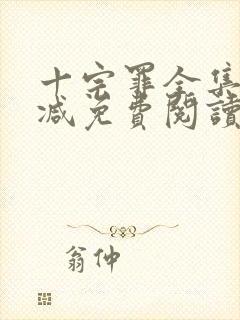 十宗罪全集
减免費閱讀
翁仲